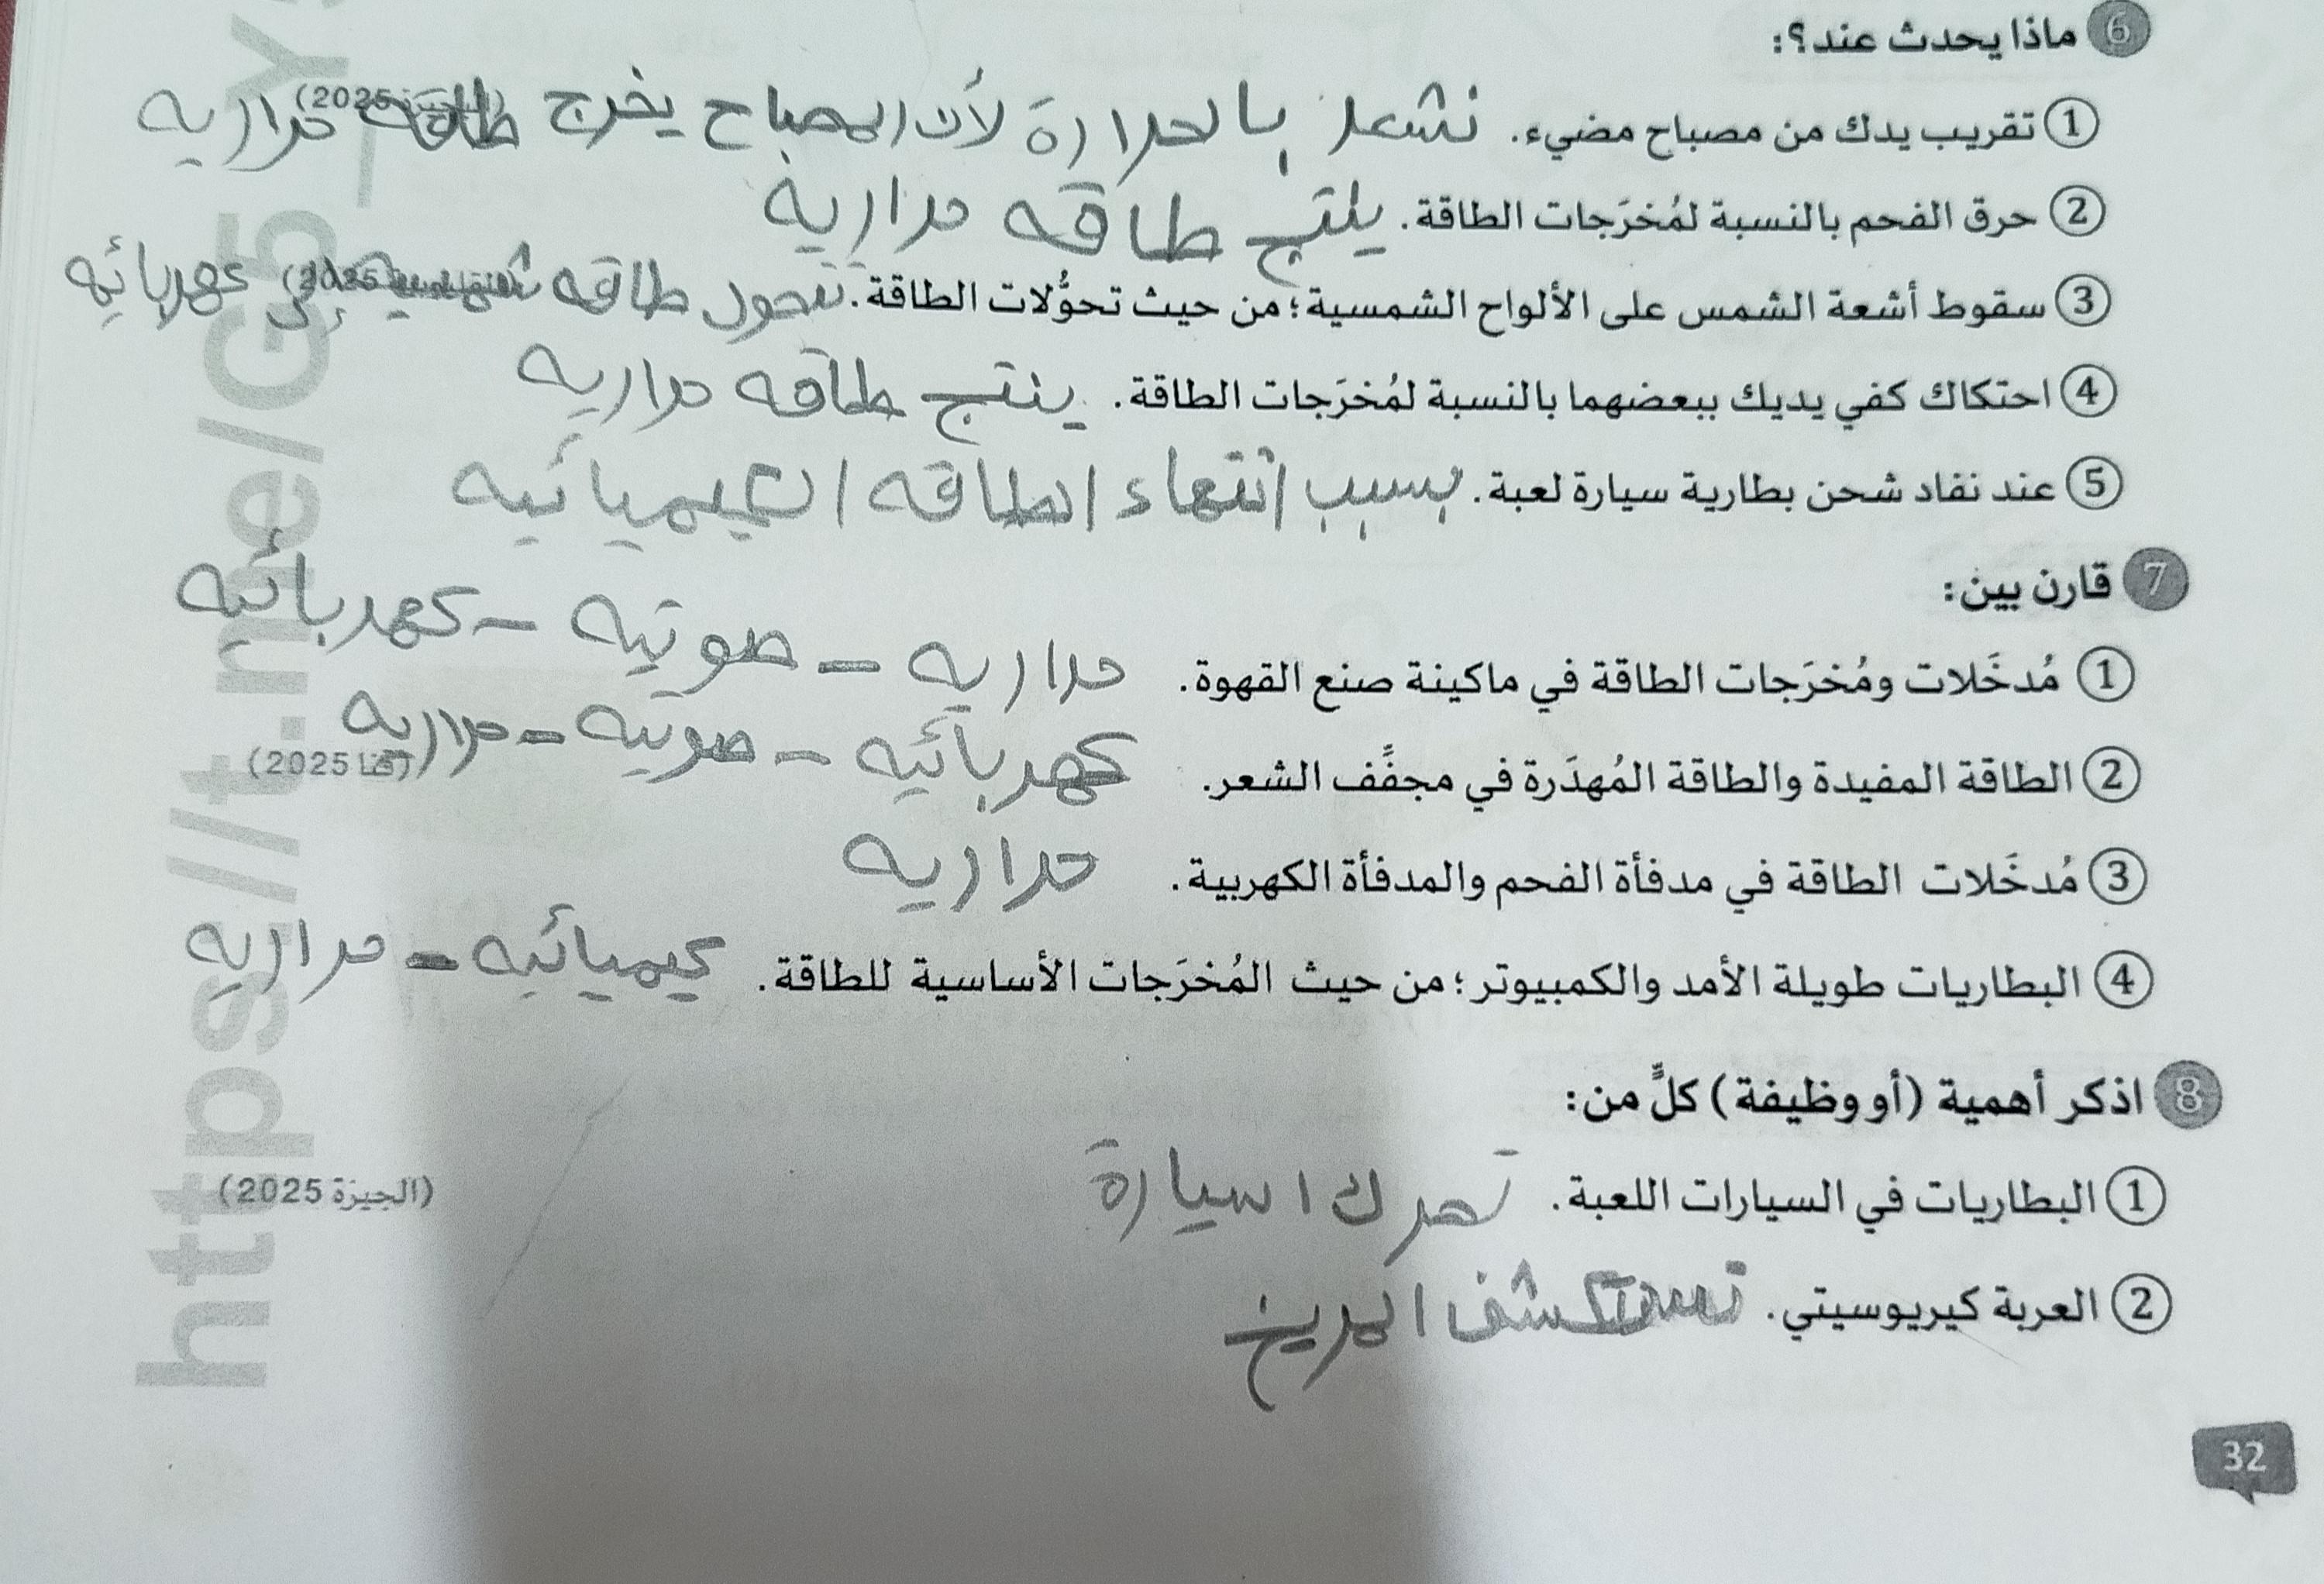 6 ماذا يحدث عند؟:
1 تقريب يدك من مصباح مضيء. نشعر بالحرارة لأن المصباح يخرج طاقة حراريه
2 حرق الفحم بالنسبة لمُخرَجات الطاقة. ينتج طاقه حراريه
3 سقوط أشعة الشمس على الألواح الشمسية؛ من حيث تحوُّلات الطاقة. تتحول طاقه شمسيه إلى كهربائيه (2025)
4 احتكاك كفي يديك ببعضهما بالنسبة لمُخرَجات الطاقة. ينتج طاقه حراريه
5 عند نفاد شحن بطارية سيارة لعبة. بسبب انتهاء الطاقه الكيميائيه
7 قارن بين:
1 مُدخَلات ومُخرَجات الطاقة في ماكينة صنع القهوة. حراريه - صوتيه - كهربائيه
2 الطاقة المفيدة والطاقة المُهدَرة في مجفِّف الشعر. كهربائيه - صوتيه - حراريه (قنا 2025)
3 مُدخَلات الطاقة في مدفأة الفحم والمدفأة الكهربية. حراريه
4 البطاريات طويلة الأمد والكمبيوتر؛ من حيث المُخرَجات الأساسية للطاقة. كيميائيه - حراريه
8 اذكر أهمية (أو وظيفة) كلٍّ من:
1 البطاريات في السيارات اللعبة. تحرك اسيارة (الجيزة 2025)
2 العربة كيريوسيتي. تستكشف المريخ
32
https//t.me/G5_Y